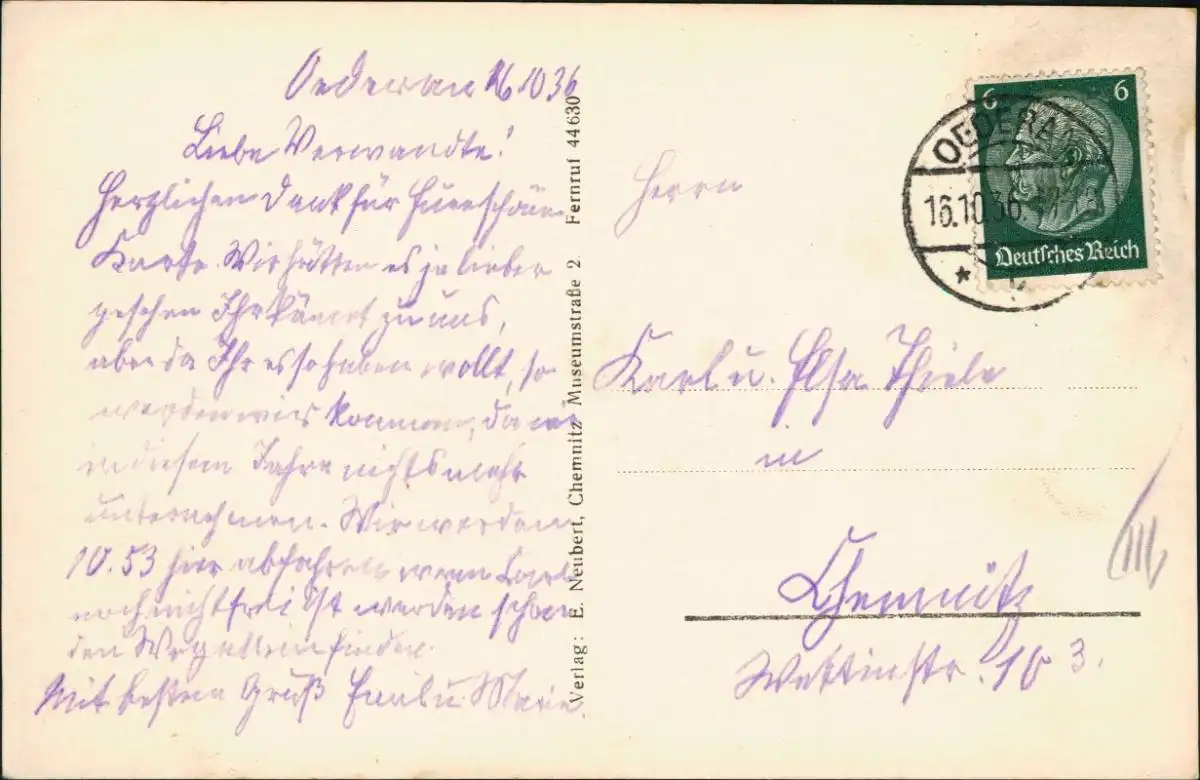 Oederan 16 10 36
Liebe Verwandte!
Herzlichen Dank für Eure schöne
Karte. Wir hätten es ja lieber
gesehen Ihr kämt zu uns,
aber da Ihr es so haben wollt, so
werden wir kommen, da wir
in diesem Jahre nichts mehr
unternehmen. Wir werden
10.53 hier abfahren wenn Karl
noch nicht frei ist werden schon
den Weg allein finden.
Mit besten Gruß Paul u. Marie.
Verlag: E. Neubert, Chemnitz Museumstraße 2. Fernruf 44630
6 6
Deutsches Reich
OEDERAN
16.10.36.
Herrn
Karl u. Elsa Thiele
in
Chemnitz
Wettinstr. 10 3.